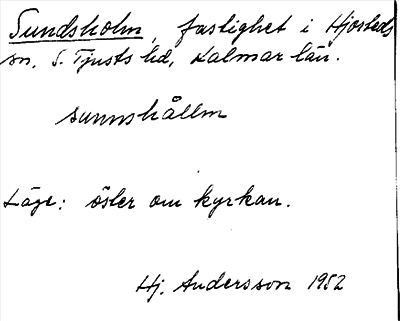 Sundsholm, fastighet i Hjorteds
sn, S. Tjusts hd, Kalmar län.
sunnshållm
Läge: öster om kyrkan.
Hj. Andersson 1952